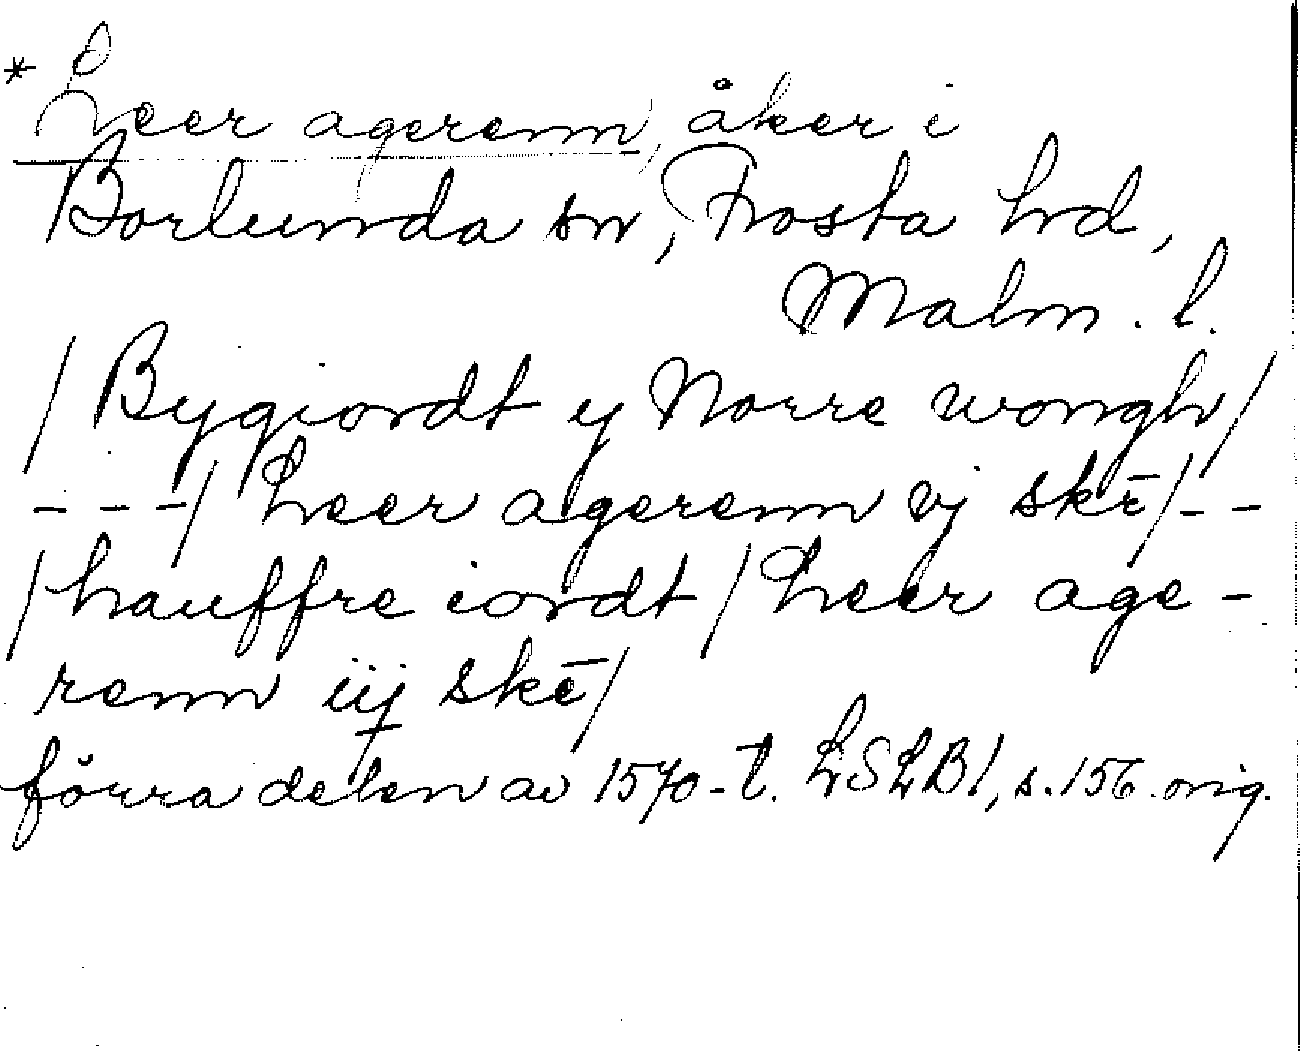 * Leer agerenn, åker i
Borlunda sn, Frosta hd,
Malm. l.
/ Bygiordt y Norre wongh /
- - - / Leer agerenn vj skē / - -
/ hauffre iordt / Leer age-
renn iij skē /
förra delen av 1570-t. LSLB 1, s. 156. orig.